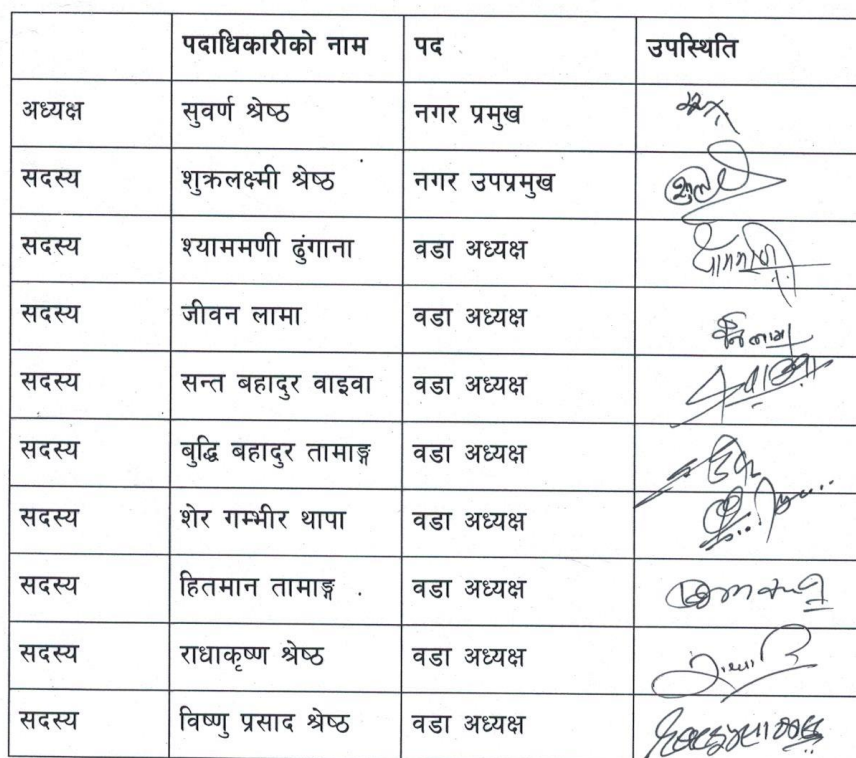 पदाधिकारीको नाम पद उपस्थिति
अध्यक्ष सुवर्ण श्रेष्ठ नगर प्रमुख
सदस्य शुक्रलक्ष्मी श्रेष्ठ नगर उपप्रमुख
सदस्य श्याममणी ढुंगाना वडा अध्यक्ष
सदस्य जीवन लामा वडा अध्यक्ष
सदस्य सन्त बहादुर वाइवा वडा अध्यक्ष
सदस्य बुद्धि बहादुर तामाङ्ग वडा अध्यक्ष
सदस्य शेर गम्भीर थापा वडा अध्यक्ष
सदस्य हितमान तामाङ्ग . वडा अध्यक्ष
सदस्य राधाकृष्ण श्रेष्ठ वडा अध्यक्ष
सदस्य विष्णु प्रसाद श्रेष्ठ वडा अध्यक्ष